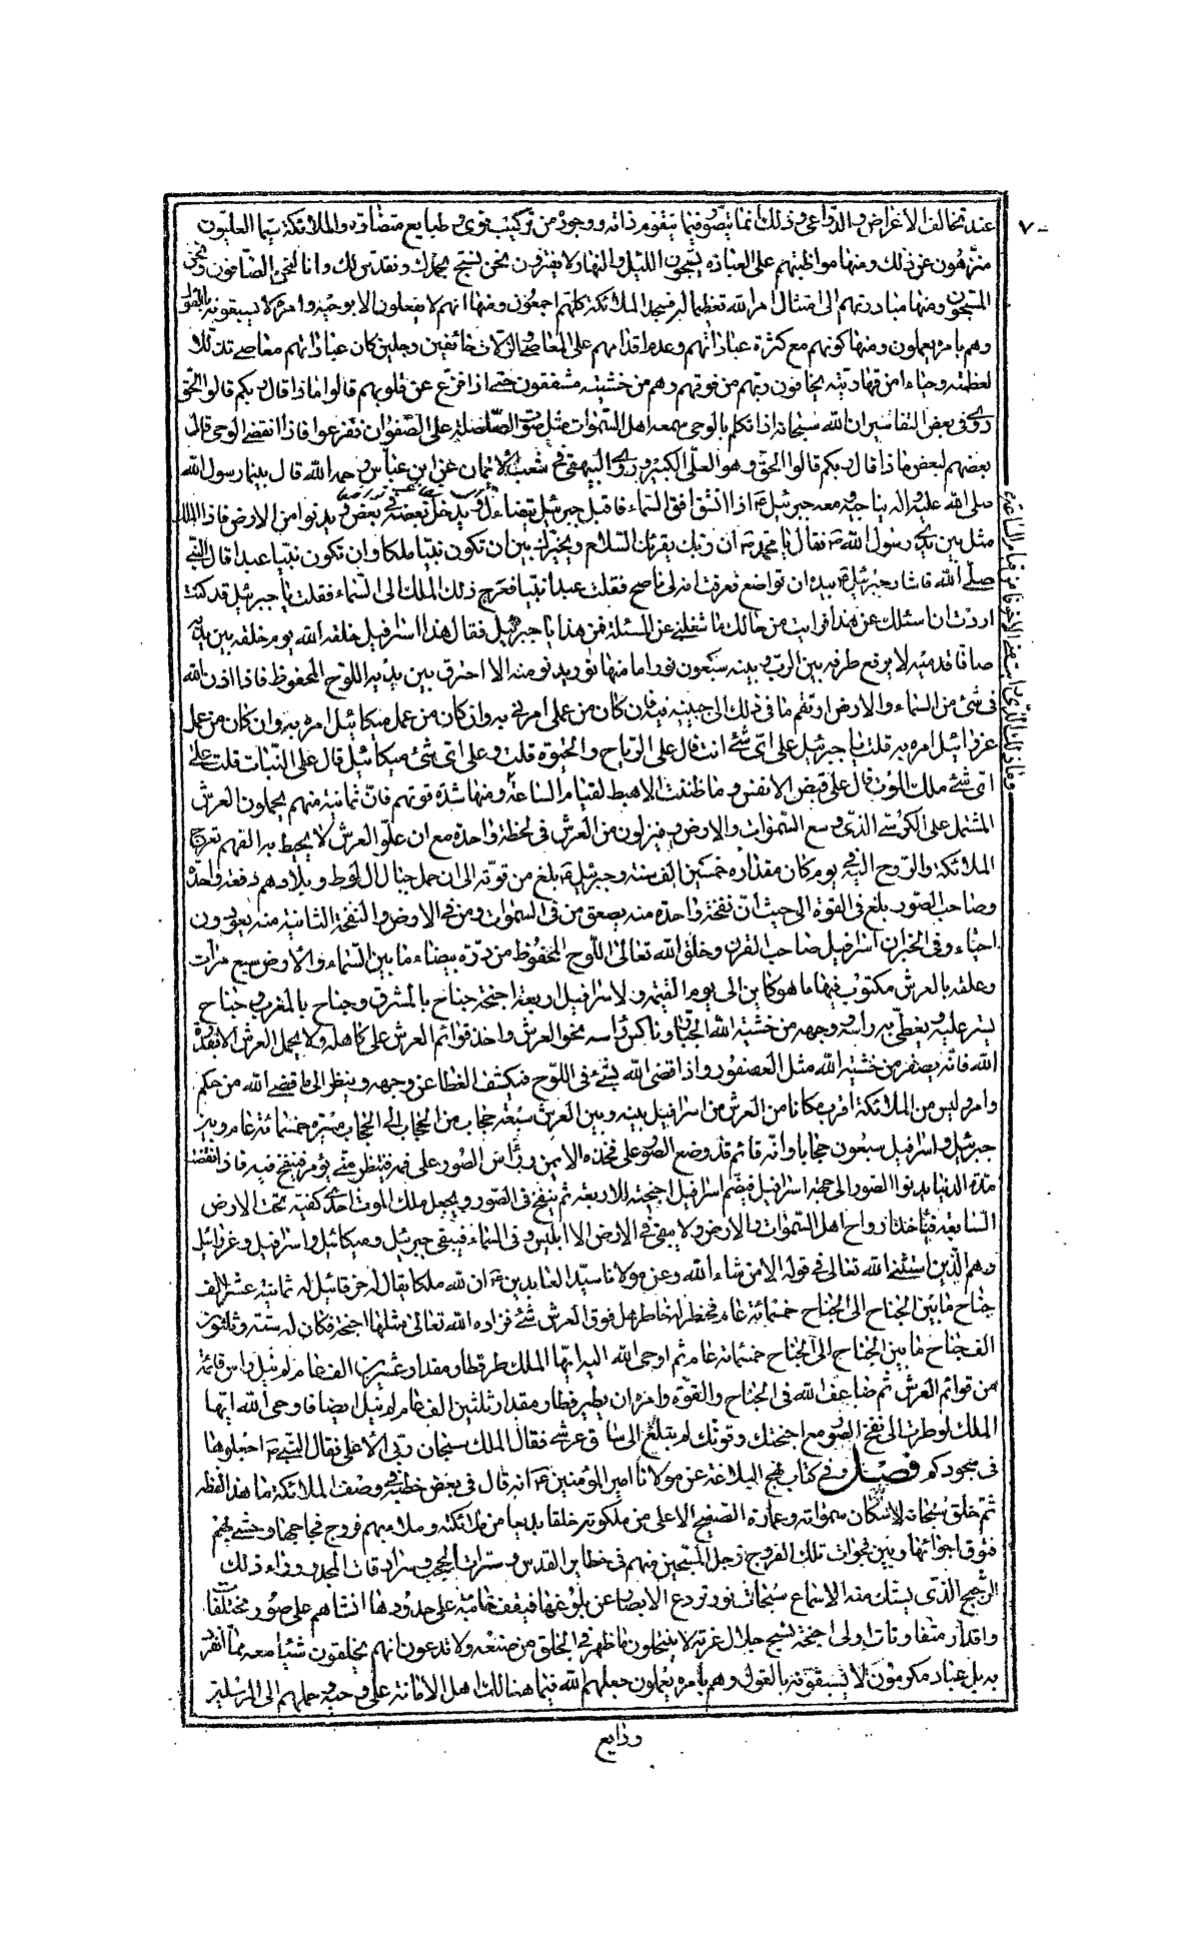 ٧٠
عند تخالف الاغراض والدواعى وذلك انما يتصور فيما يتقوم ذاته ووجوده من تركيب قوى وطبايع متضادة والملائكة سيما العليون
منزهون عن ذلك ومنها مواظبتهم على العبادة يسبحون الليل والنهار لا يفترون نحن نسبح بحمدك ونقدس لك وانا لنحن الصافون ونحن
المسبحون ومنها مبادرتهم الى امتثال امر الله تعظيما له فسجد الملائكة كلهم اجمعون ومنها انهم لا يفعلون الا بوحيه وامره لا يسبقونه بالقول
وهم بامره يعملون ومنها كونهم مع كثرة عباداتهم وعدم اقدامهم على المعاصى والزلات خائفين وجلين كان عباداتهم معاصى تذللا
لعظمته وحياء من يخافون ربهم من فوقهم وهم من خشيته مشفقون حتى اذا فزع عن قلوبهم قالوا ماذا قال ربكم قالوا الحق
روى فى بعض التفاسير ان الله سبحانه اذا تكلم بالوحى سمعه اهل السموات مثل صوت الصلصلة على الصفوان ففزعوا فاذا انقضى الوحى قال
بعضهم لبعض ماذا قال ربكم قالوا الحق وهو العلى الكبير وروى البيهقى فى شعب الايمان عن ابن عباس رحمه الله قال بينما رسول الله
صلى الله عليه واله بناحية ومعه جبرئيل اذا انشق افق السماء فاقبل جبرئيل يتضاءل ويدخل بعضه فى بعض ويدنوا من الارض فاذا الملك
مثل بين يدى رسول الله ص فقال يا محمد ص ان ربك يقرئك السلام ويخيرك بين ان تكون نبيا ملكا وان تكون نبيا عبدا قال النبى
صلى الله فاشار جبرئيل بيده ان تواضع فعرفت انه لى ناصح فقلت عبدا نبيا فعرج ذلك الملك الى السماء فقلت يا جبرئيل قد كنت
اردت ان اسئلك عن هذا فرايت من حالك ما شغلنى عن المسئلة فمن هذا يا جبرئيل فقال هذا اسرافيل خلقه الله يوم خلقه بين يديه
صافا قدميه لا يرفع طرفه بين الرب وبينه سبعون نورا ما منها نور يدنو منه الا احترق بين يديه اللوح المحفوظ فاذا اذن الله
فى شئ من السماء والارض ارتفع ما فى ذلك الى جبينه فان كان من عملى امرنى به وان كان من عمل ميكائيل امره به وان كان من عمل
عزرائيل امره به قلت يا جبرئيل على اى شئ انت قال على الرياح والجنود قلت وعلى اى شئ ميكائيل قال على النبات قلت على
اى شئ ملك الموت قال على قبض الانفس وما ظننت الا هبط لقيام الساعة ومنها شدة قوتهم فان ثمانية منهم يحملون العرش
المشتمل على الكرسى الذى وسع السموات والارض وينزلون من العرش فى لحظة واحدة مع ان علو العرش لا يحيط به الفهم تعرج
الملائكة والروح اليه فى يوم كان مقداره خمسين الف سنة وجبرئيل بلغ من قوته الى ان حمل جبال ال لوط وبلادهم دفعة واحدة
وصاحب الصور بلغ فى القوة الى حيث ان نفخة واحدة منه يصعق من فى السموات ومن فى الارض والنفخة الثانية منه يعودون
احياء وفى الخبر ان اسرافيل صاحب القرن وخلق الله تعالى اللوح المحفوظ من درة بيضاء ما بين السماء والارض سبع مرات
وعلقه بالعرش مكتوب فيها ما هو كاين الى يوم القيمة ولاسرافيل اربعة اجنحة جناح بالمشرق وجناح بالمغرب وجناح
يستر عليه ويغطى به راسه ووجهه من خشية الله الجبار وناكس راسه نحو العرش واخذ قوائم العرش على كاهله ولا يحمل العرش الا بقدرة
الله فانه يصغر من خشية الله مثل العصفور واذا قضى الله بشئ فى اللوح فيكشف الغطا عن وجهه وينظر الى ما قضى الله من حكم
وامر وليس من الملائكة اقرب مكانا من العرش من اسرافيل بينه وبين العرش سبعة حجاب من الحجاب الى الحجاب مسيرة خمسمائة عام وبين
جبرئيل واسرافيل سبعون حجابا وانه قائم قد وضع الصور على فخذه الايمن وراس الصور على فمه فينظر متى يؤمر فينفخ فيه فاذا انقضت
مدة الدنيا يدنوا الصور الى جبهة اسرافيل فيضم اسرافيل اجنحته الاربعة ثم ينفخ فى الصور ويجعل ملك الموت احدى كفيه تحت الارض
السابعة فيأخذ ارواح اهل السموات والارض ولا يبقى فى الارض الا ابليس وفى السماء فيبقى جبرئيل وميكائيل واسرافيل وعزرائيل
وهم الذين استثنى الله تعالى فى قوله الا من شاء الله وعن مولانا سيد العابدين ان لله ملكا يقال له خرقائيل له ثمانية عشر الف
جناح ما بين الجناح الى الجناح خمسمائة عام فخطر له خاطر هل فوق العرش شئ فزاده الله تعالى مثلها اجنحة فكان له ستة وثلثون
الف جناح ما بين الجناح الى الجناح خمسمائة عام ثم اوحى الله اليه ايها الملك طر فطار مقدار عشرين الف عام لم ينل راس قائمة
من قوائم العرش ثم ضاعف الله فى الجناح والقوة وامره ان يطير فطار مقدار ثلثين الف عام لم ينل ايضا فاوحى الله ايها
الملك لو طرت الى نفخ الصور مع اجنحتك وقوتك لم تبلغ الى ساق عرشى فقال الملك سبحان ربى الاعلى فقال النبى ص اجعلوها
فى سجودكم فصل وفى كتاب نهج البلاغة عن مولانا امير المؤمنين انه قال فى بعض خطبه فى وصف الملائكة ما هذا لفظه
ثم خلق سبحانه لاسكان سمواته وعمارة الصفيح الاعلى من ملكوته خلقا بديعا من ملائكته وملأ بهم فروج فجاجها وحشى بهم
فتوق اجوائها وبين فجوات تلك الفروج زجل المسبحين منهم فى حظاير القدس وسترات الحجب وسرادقات المجد ووراء ذلك
الرجيج الذى يستك منه الاسماع سبحات نور تردع الابصار عن بلوغها فيقف خاسئة على حدودها انشاهم على صور مختلفات
واقدار متفاوتات اولى اجنحة تسبح جلال عزته لا ينتحلون ما ظهر فى الخلق من صنعه ولا يدعون انهم يخلقون شيئا معه مما انفرد
به بل عباد مكرمون لا يسبقونه بالقول وهم بامره يعملون جعلهم الله فيما هنالك اهل الامانة على وحيه وحملهم الى المرسلين
ودايع